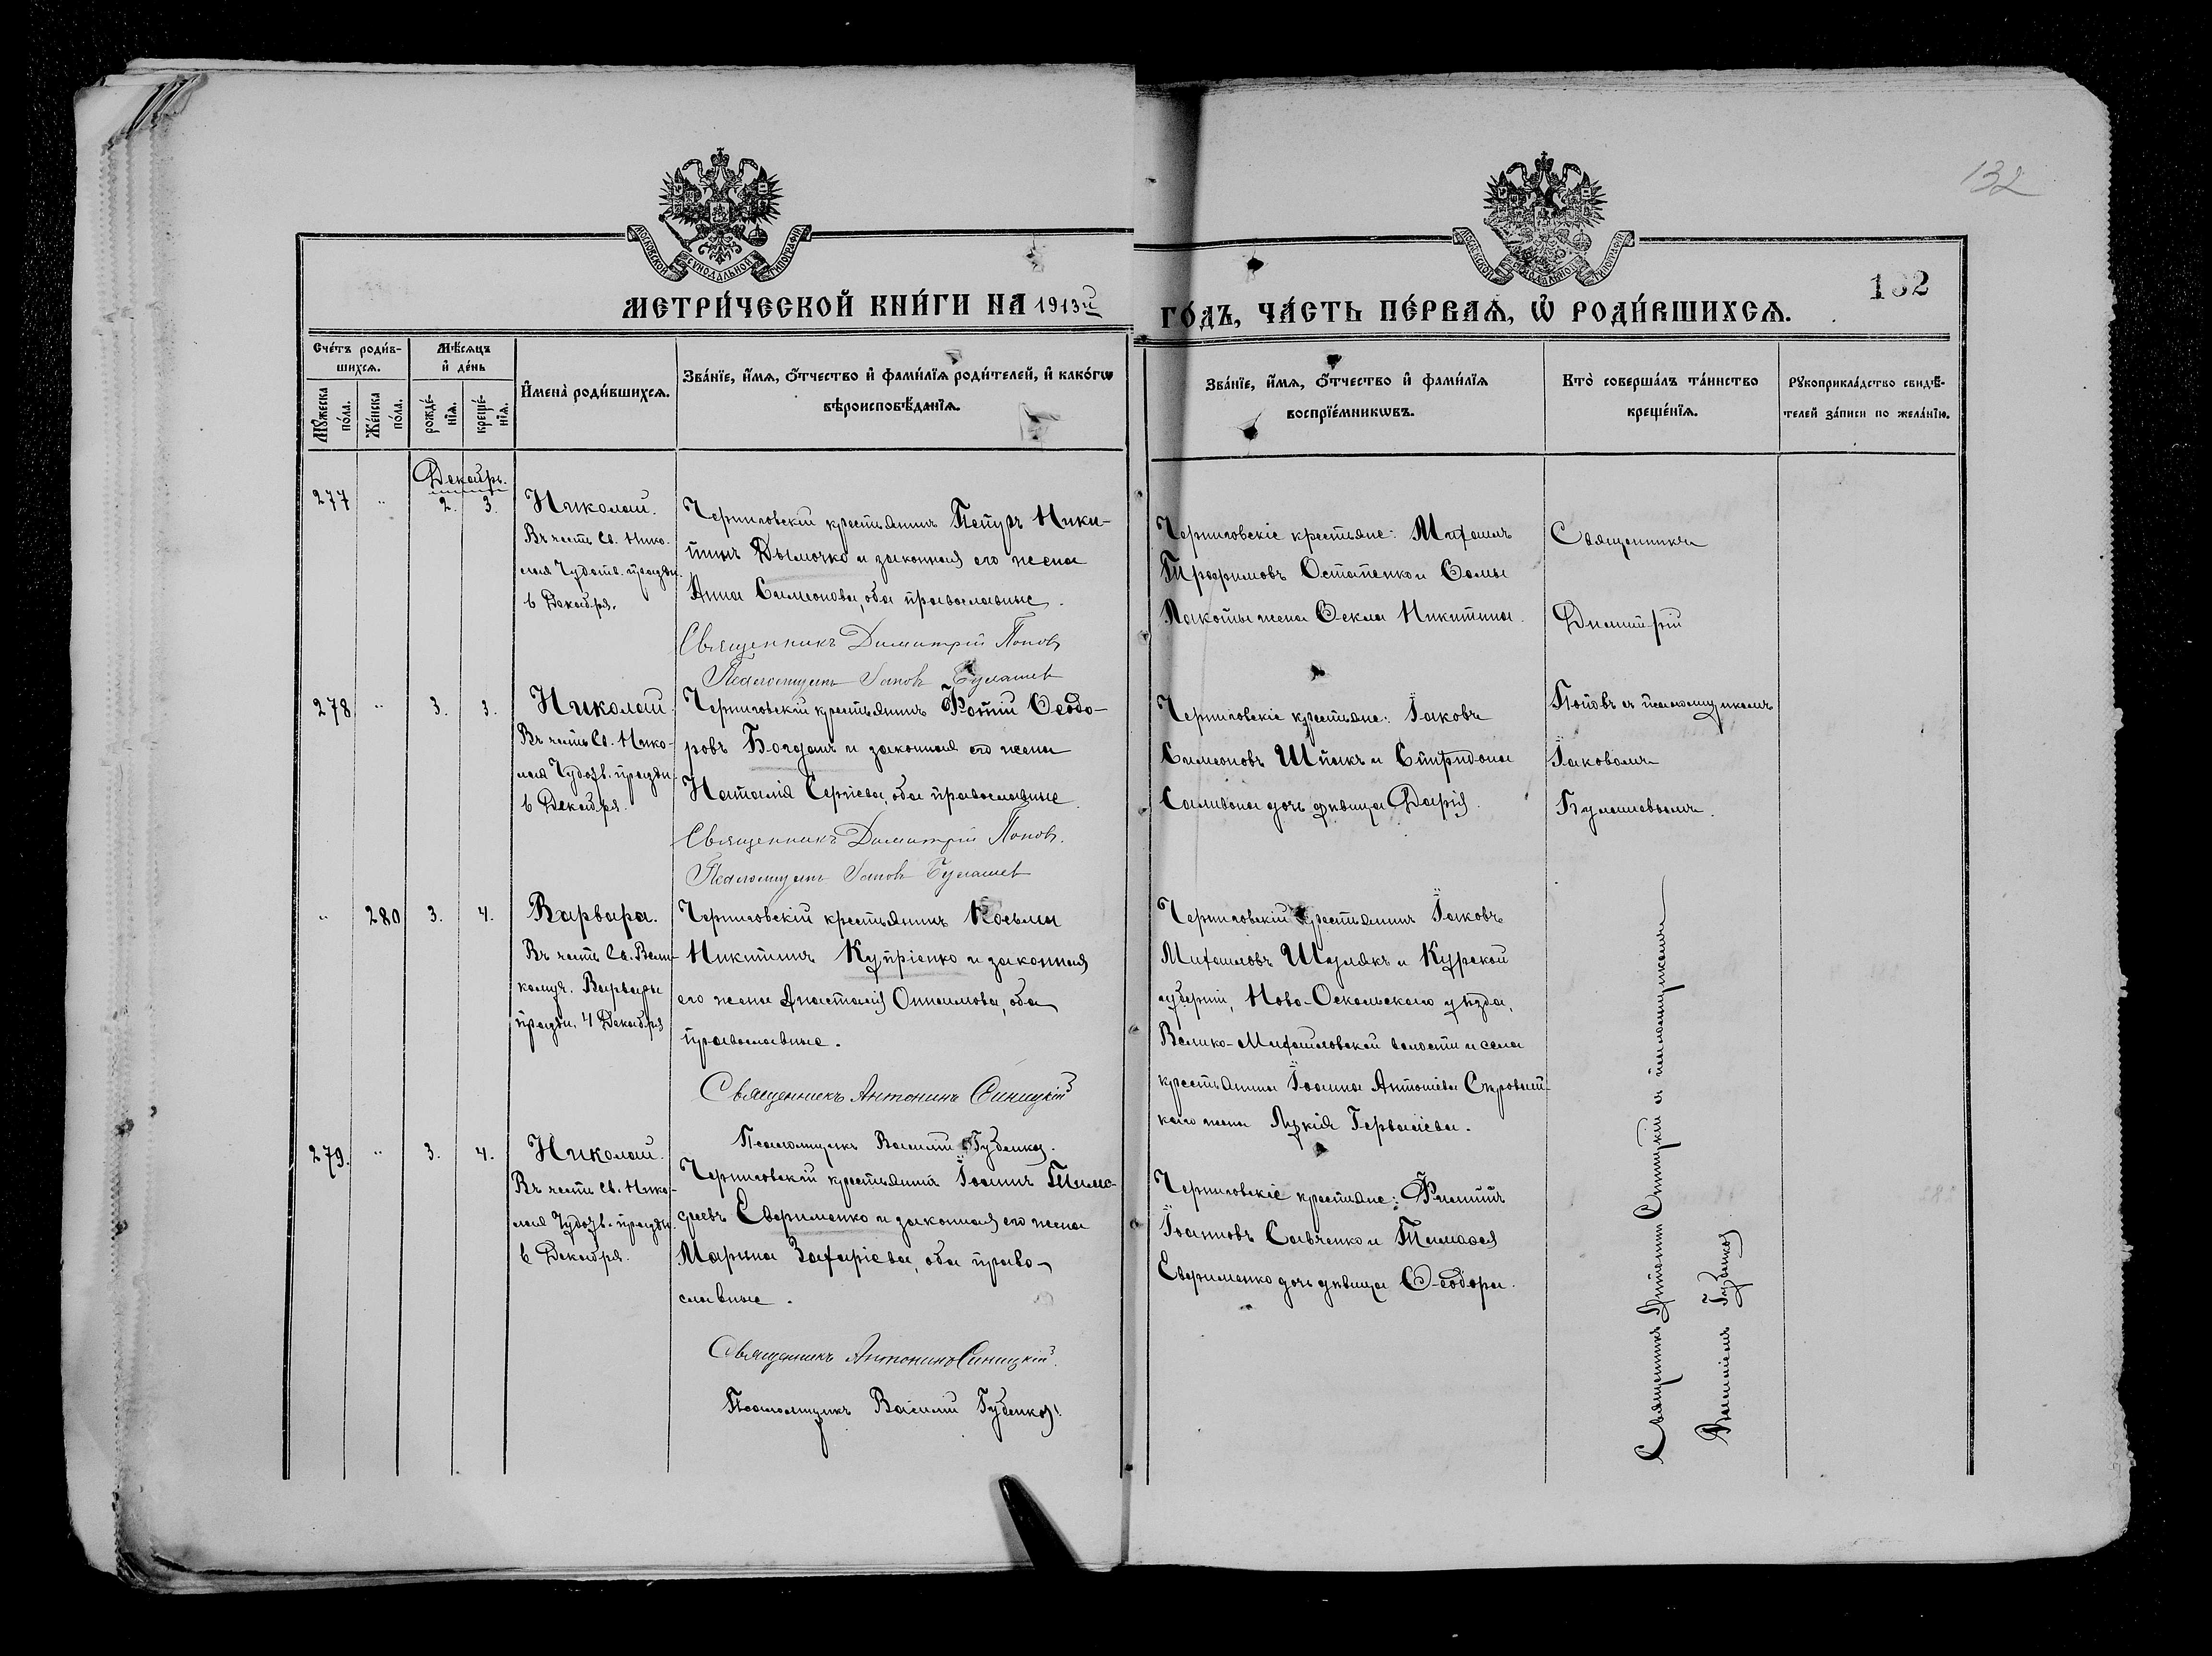 132
132
МОСКОВСКОЙ СѴНОДАЛЬНОЙ ТИПОГРАФІИ
МОСКОВСКОЙ СѴНОДАЛЬНОЙ ТИПОГРАФІИ
МЕТРИ́ЧЕСКОЙ КНИ́ГИ НА 1913й
ГО́ДЪ, ЧА́СТЬ ПЕ́РВАѦ, Ѽ РОДИ́ВШИХСѦ.
Сче́тъ роди́в-
шихсѧ.
Мѣ́сѧцъ
и҆ де́нь
Мꙋ́жеска
по́ла.
Же́нска
по́ла.
рожде́-
нїѧ.
креще́-
нїѧ.
И҆мена̀ роди́вшихсѧ.
Зва́нїе, и҆́мѧ, ѻ҆́тчество и҆ фами́лїѧ роди́телей, и҆ како́гѡ
вѣроисповѣ́данїѧ.
Зва́нїе, и҆́мѧ, ѻ҆́тчество и҆ фами́лїѧ
воспрїе́мникѡвъ.
Кто̀ соверша́лъ та́инство
креще́нїѧ.
Рꙋкоприкла́дство свидѣ́-
телей за́писи по жела́нїю.
Декабрь.
277 " 2. 3. Николай.
Въ честь Св. Нико-
лая Чудотв. праздн.
6 Декабря.
Черниговскій крестьянинъ Петръ Ники-
тинъ Дымочко и законная его жена
Анна Симеонова, оба православные.
Священникъ Димитрій Попов
Псаломщикъ Іаков Булашев
Черниговскіе крестьяне: Михаилъ
Трофимовъ Остапенко и Сомы
Лакоты жена Ѳекла Никитина.
Священникъ
Димитрій
Поповъ съ псаломщикомъ
Іаковомъ
Булашевымъ.
278 " 3. 3. Николай
Въ честь Св. Нико-
лая Чудотв. праздн.
6 Декабря.
Черниговскій крестьянинъ Фотій Ѳеодо-
ровъ Богданъ и законная его жена
Наталія Сергіева, оба православные.
Священникъ Димитрій Попов.
Псаломщикъ Іаков Булашев
Черниговскіе крестьяне: Іаковъ
Симеоновъ Шпакъ и Спиридона
Саливона дочь дѣвица Дарія.
" 280 3. 4. Варвара.
Въ честь Св. Вели-
комуч. Варвары
праздн. 4 Декабря
Черниговскій крестьянинъ Косьма
Никитинъ Купріенко и законная
его жена Анастасія Онисимова, оба
православные.
Священникъ Антонинъ Синицкій
Псаломщикъ Василій Губенко.
Черниговскій крестьянинъ Іаковъ
Михаиловъ Шулякъ и Курской
губерніи, Ново-Оскольскаго уѣзда,
Велико-Михайловской волости и села
крестьянина Іоанна Антоніева
жена Лукія Гервасіева.
Священникъ Антонинъ Синицкій съ псаломщикомъ
Василіемъ Губенко
279. " 3. 4. Николай.
Въ честь Св. Нико-
лая Чудотв. праздн.
6 Декабря.
Черниговскій крестьянинъ Іоаннъ Тимо-
феевъ Ефименко и законная его жена
Марина Захаріева, оба право-
славные.
Священникъ Антонинъ Синицкій.
Псаломщикъ Василій Губенко.
Черниговскіе крестьяне: Филиппъ
Іоанновъ Савченко и Тимофея
Ефименко дочь дѣвица Ѳеодора.